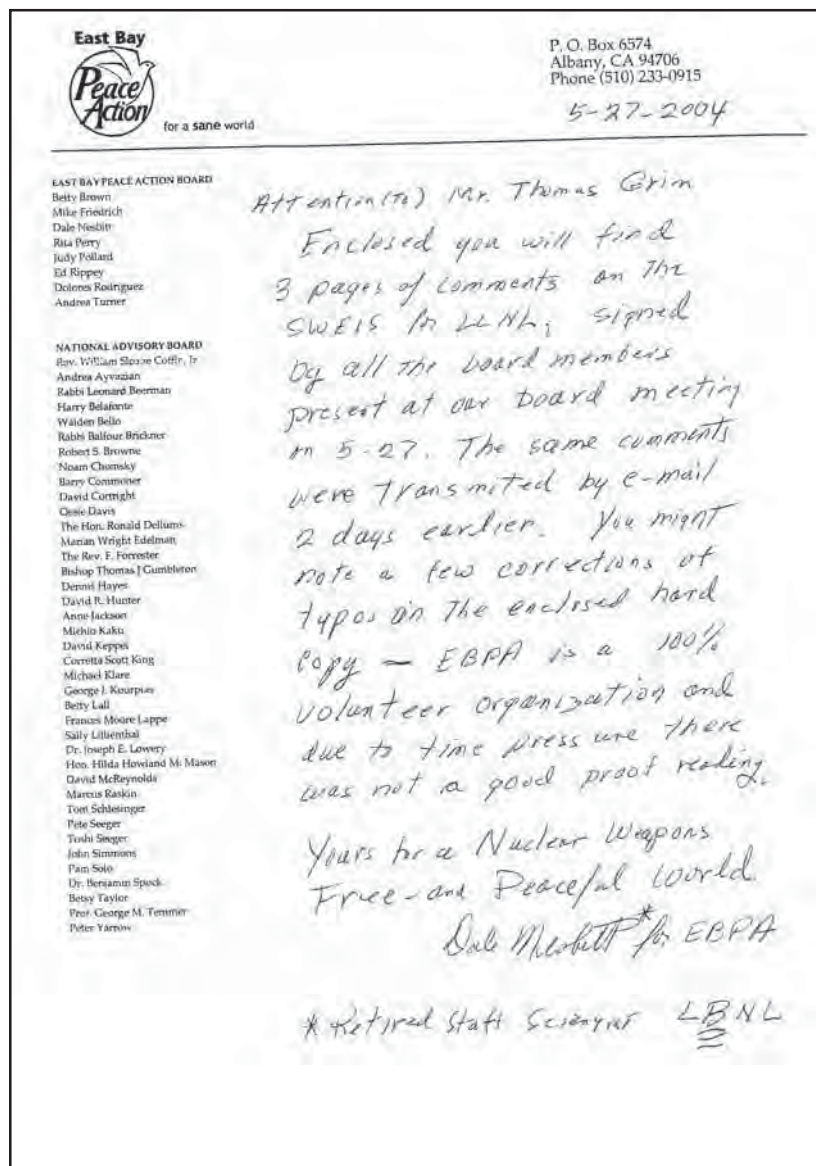 East Bay
Peace
Action
for a sane world
P. O. Box 6574
Albany, CA 94706
Phone (510) 233-0915
5-27-2004
EAST BAY PEACE ACTION BOARD
Betty Brown
Mike Friedrich
Dale Nesbitt
Rita Perry
Judy Pollard
Ed Rippey
Dolores Rodriguez
Andrea Turner
NATIONAL ADVISORY BOARD
Rev. William Sloane Coffin, Jr
Andrea Ayvazian
Rabbi Leonard Beerman
Harry Belafonte
Walden Bello
Rabbi Balfour Brickner
Robert S. Browne
Noam Chomsky
Barry Commoner
David Cortright
Ossie Davis
The Hon. Ronald Dellums
Marian Wright Edelman
The Rev. F. Forrester
Bishop Thomas J Gumbleton
Dennis Hayes
David R. Hunter
Anne Jackson
Michio Kaku
David Keppel
Corretta Scott King
Michael Klare
George J. Kourpias
Betty Lall
Frances Moore Lappe
Sally Lilienthal
Dr. Joseph E. Lowery
Hon. Hilda Howland M. Mason
David McReynolds
Marcus Raskin
Tom Schlesinger
Pete Seeger
Toshi Seeger
John Simmons
Pam Solo
Dr. Benjamin Spock
Betsy Taylor
Prof. George M. Temmer
Peter Yarrow
Attention (To) Mr. Thomas Grim
Enclosed you will find
3 pages of comments on the
SWEIS for LLNL; signed
by all the board members
present at our board meeting
on 5-27. The same comments
were transmited by e-mail
2 days earlier. You might
note a few corrections of
typos on the enclosed hard
copy — EBPA is a 100%
volunteer organization and
due to time pressure there
was not a good proof reading.
Yours for a Nuclear Weapons
Free - and Peaceful World.
Dale Nesbitt* for EBPA
* Retired Staff Scientist LBNL